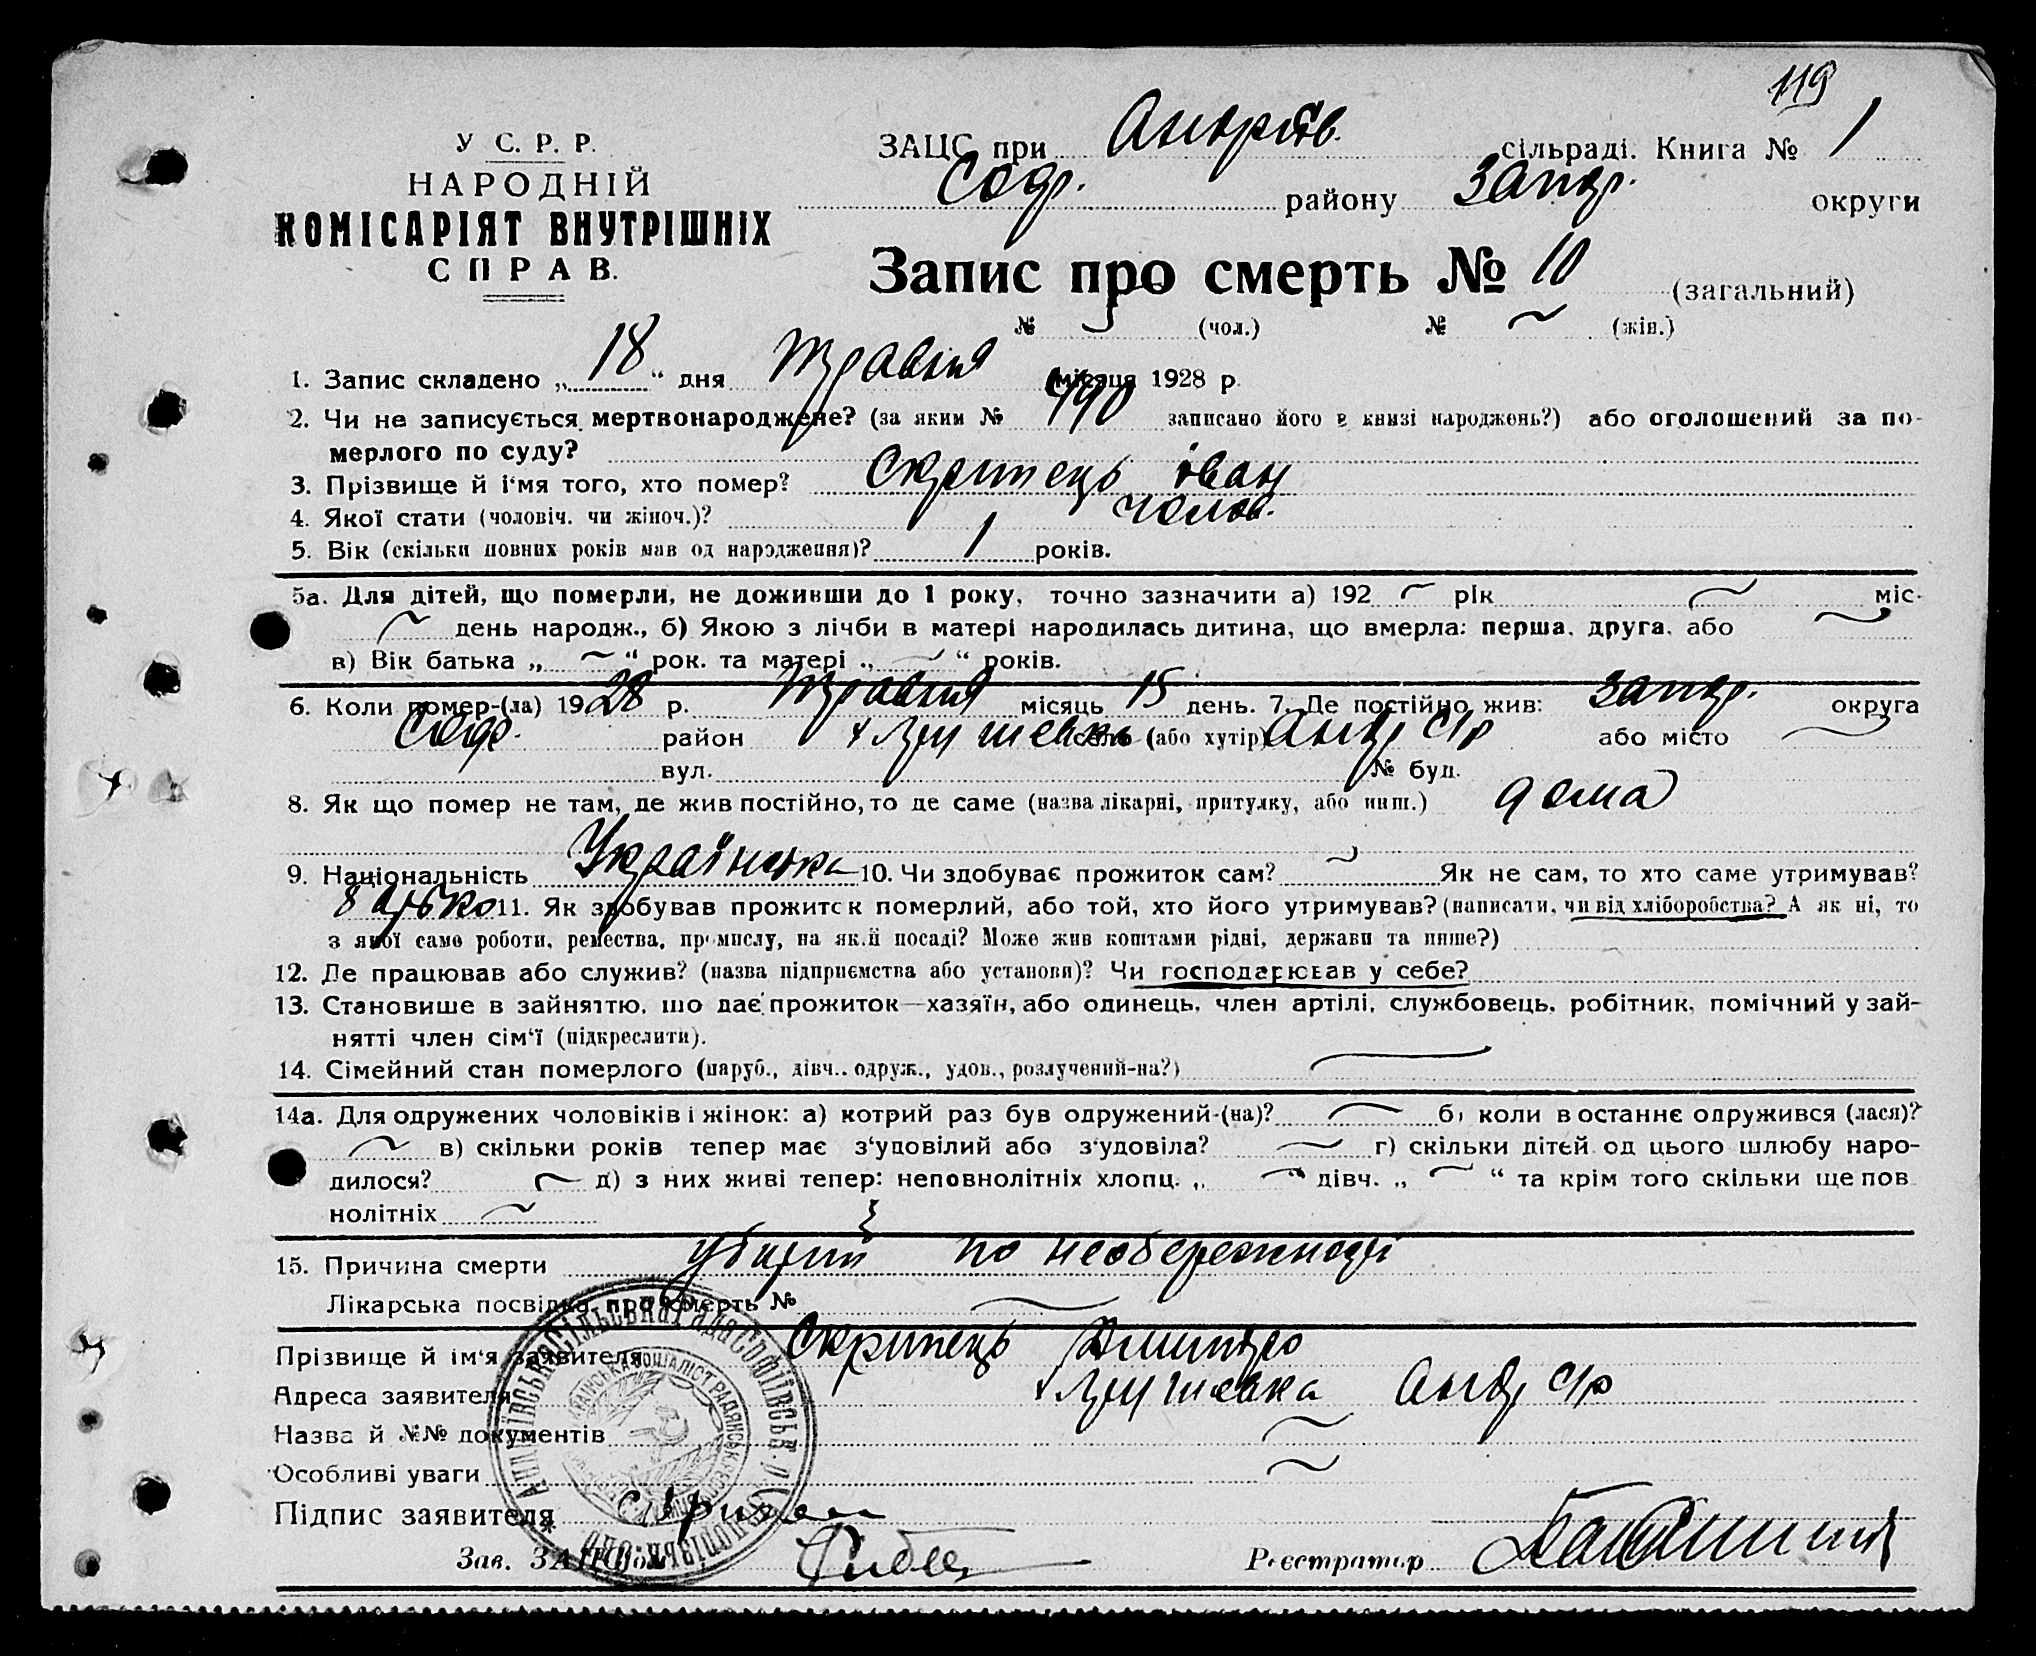 119
У С. Р. Р.
НАРОДНІЙ
КОМІСАРІЯТ ВНУТРІШНІХ
СПРАВ.
ЗАЦС при Андріїв. сільраді. Книга № 1
Соф. району Запор. округи
Запис про смерть № 10 (загальний)
№ 5 (чол.) № ~ (жін.)
1. Запис складено „18“ дня Травня місяця 1928 р.
2. Чи не записується мертвонароджене? (за яким № записано його в книзі народжень?) або оголошений за по-
мерлого по суду?
3. Прізвище й і‘мя того, хто помер? Скрипець Іван
4. Якої стати (чоловіч. чи жіноч.)? чолов.
5. Вік (скільки повних років мав од народження)? 1 років.
5а. Для дітей, що померли, не доживши до 1 року, точно зазначити а) 192 ~ рік ~ міс.
~ день народж., б) Якою з лічби в матері народилась дитина, що вмерла: перша, друга, або ~
в) Вік батька „ ~ “ рок. та матері „ ~ “ років.
6. Коли помер-(ла) 1928 р. Травня місяць 15 день. 7. Де постійно жив: Запор. округа
Соф. район село (або хутір) Андр с/р або місто ~
вул. № буд.
8. Як що помер не там, де жив постійно, то де саме (назва лікарні, притулку, або инш.) дома
9. Національність Українська 10. Чи здобуває прожиток сам? ~ Як не сам, то хто саме утримував?
батько 11. Як здобував прожиток померлий, або той, хто його утримував? (написати, чи від хліборобства? А як ні, то
з якої само роботи, ремества, промислу, на якій посаді? Може жив коштами рідні, держави та инше?)
12. Де працював або служив? (назва підприємства або установи)? Чи господарював у себе?
13. Становише в зайняттю, що дає прожиток—хазяїн, або одинець, член артілі, службовець, робітник, помічний у зай-
нятті член сім‘ї (підкреслити).
14. Сімейний стан померлого (паруб., дівч.. одруж., удов., розлучений-на?) ~
14а. Для одружених чоловіків і жінок: а) котрий раз був одружений-(на)? ~ б) коли востаннє одружився (лася)?
~ в) скільки років тепер має з‘удовілий або з‘удовіла? ~ г) скільки дітей од цього шлюбу наро-
дилося? ~ д) з них живі тепер: неповнолітніх хлопц. „ ~ “ дівч. „ ~ “ та крім того скільки ще пов
нолітніх ~
15. Причина смерти убитий по необережності
Лікарська посвідка про смерть № ~
Прізвище й ім‘я заявителя Скрипець Дмитро
Адреса заявителя Андр с/р
Назва й №№ документів ~
Особливі уваги ~
Підпис заявителя
Зав. ЗАЦС‘ом
Реєстратор